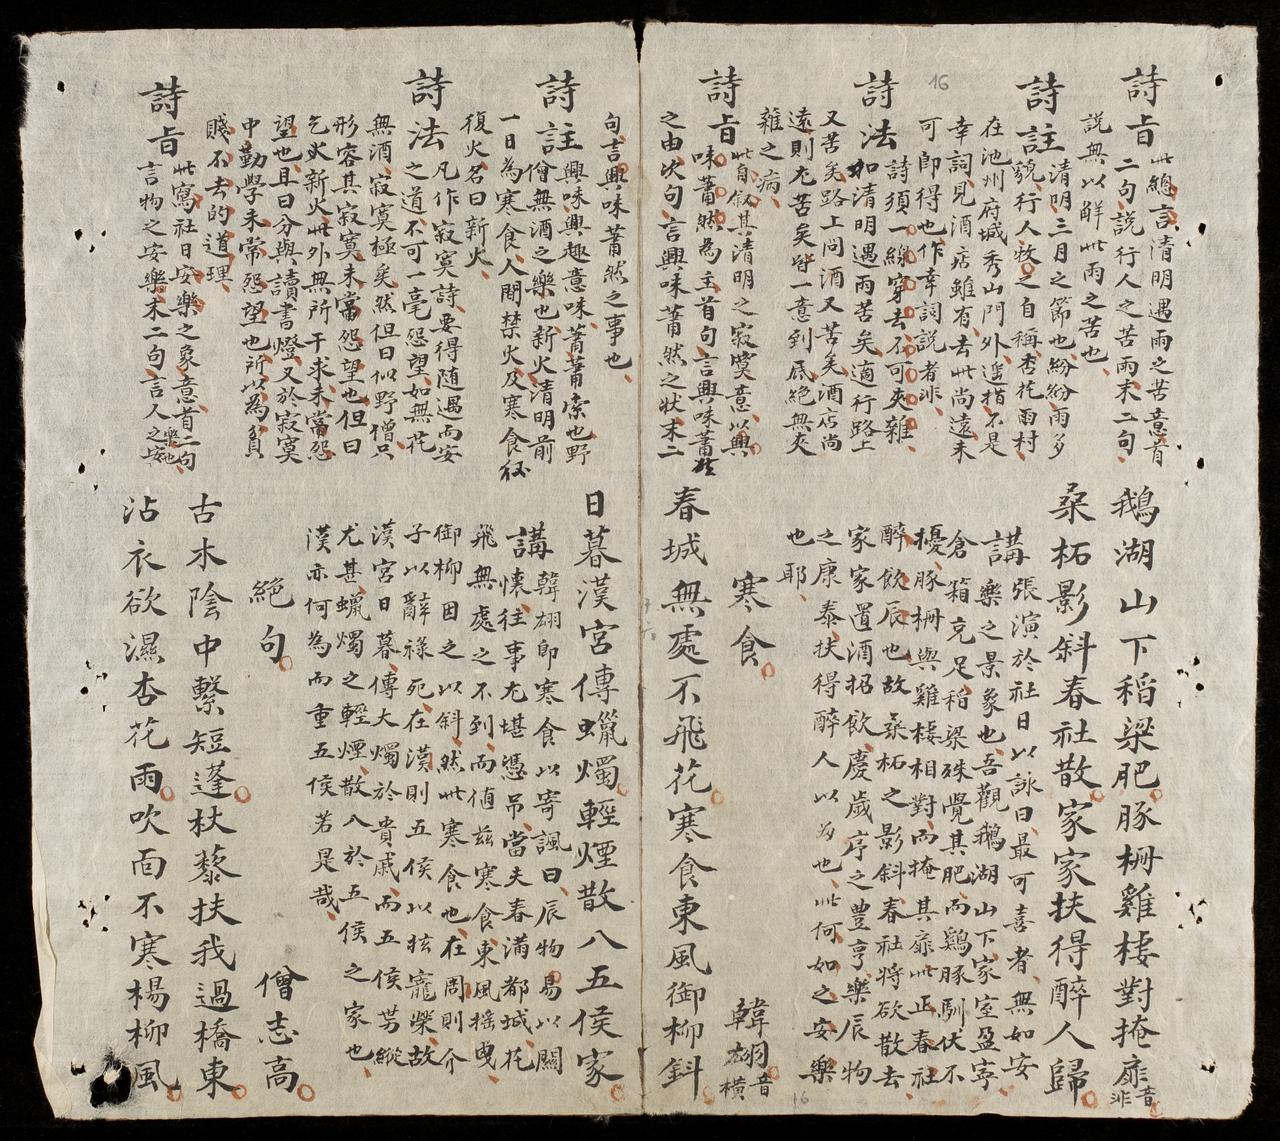 詩旨 此總言清明遇雨之苦意首
二句說行人之苦雨末二句
説無以解此雨之苦也
詩註 清明三月之節也紛紛雨多
貌行人牧之自稱杏花雨村
在池州府城秀山門外遥指不是
幸詞見酒店雖有去此尚遠未
可即得也作幸詞説者非
詩法 詩須一線穿去不可夾雜
如清明遇雨苦矣適行路上
又苦矣路上問酒又苦矣酒店尚
遠則尤苦矣皆一意到底絶無夾
雜之病
詩旨 此自叙其清明之寂寞意以興
味蕭然為主首句言興味蕭然
之由次句言興味蕭然之状末二
鵝湖山下稻梁肥豚柵雞棲對掩扉音非
桑柘影斜春社散家家扶得醉人歸
講 張演於社日以詠曰最可喜者無如安
樂之景象也吾觀鵝湖山下家室盈寧
倉箱充足稻梁殊覺其肥而鷄豚馴伏不
擾豚柵與雞棲相對而掩其扉此正春社
醉飲辰也故桑柘之影斜春社將欲散去
家家置酒招飲慶歲序之豊亨樂辰物
之康泰扶得醉人以為也此何如之安樂
也耶
寒食 韓翃音橫
春城無處不飛花寒食東風御柳斜
句言興味蕭然之事也
詩註 興味興趣意味蕭蕭索也野
僧無酒之樂也新火清明前
一日為寒食人間禁火及寒食後
復火名曰新火
詩法 凡作寂寞詩要得随遇而安
之道不可一毫怨望如無花
無酒寂寞極矣然但曰似野僧只
形容其寂寞未嘗怨望也但曰
乞火新火此外無所干求未嘗怨
望也且曰分與讀書燈又於寂寞
中勤學未常怨望也所以為貧
賤不去的道理
詩旨 此寫社日安樂之象意首二句
言物之安樂末二句言人之安樂也
日暮漢宮傳蠟燭輕煙散入五侯家
講 韓翃即寒食以寄諷曰辰物易以關
懷往事尤堪憑吊當夫春滿都城花
飛無處之不到而値兹寒食東風摇曳
御柳因之以斜然此寒食也在周則介
子以辭祿死在漢則五侯以炫寵榮故
漢宮日暮傳大燭於貴戚而五侯勢縱
尤甚蠟燭之輕煙散入於五侯之家也
漢亦何為而重五侯若是哉
絶句 僧志高
古木陰中繫短蓬杖藜扶我過橋東
沾衣欲濕杏花雨吹面不寒楊柳風
16
16